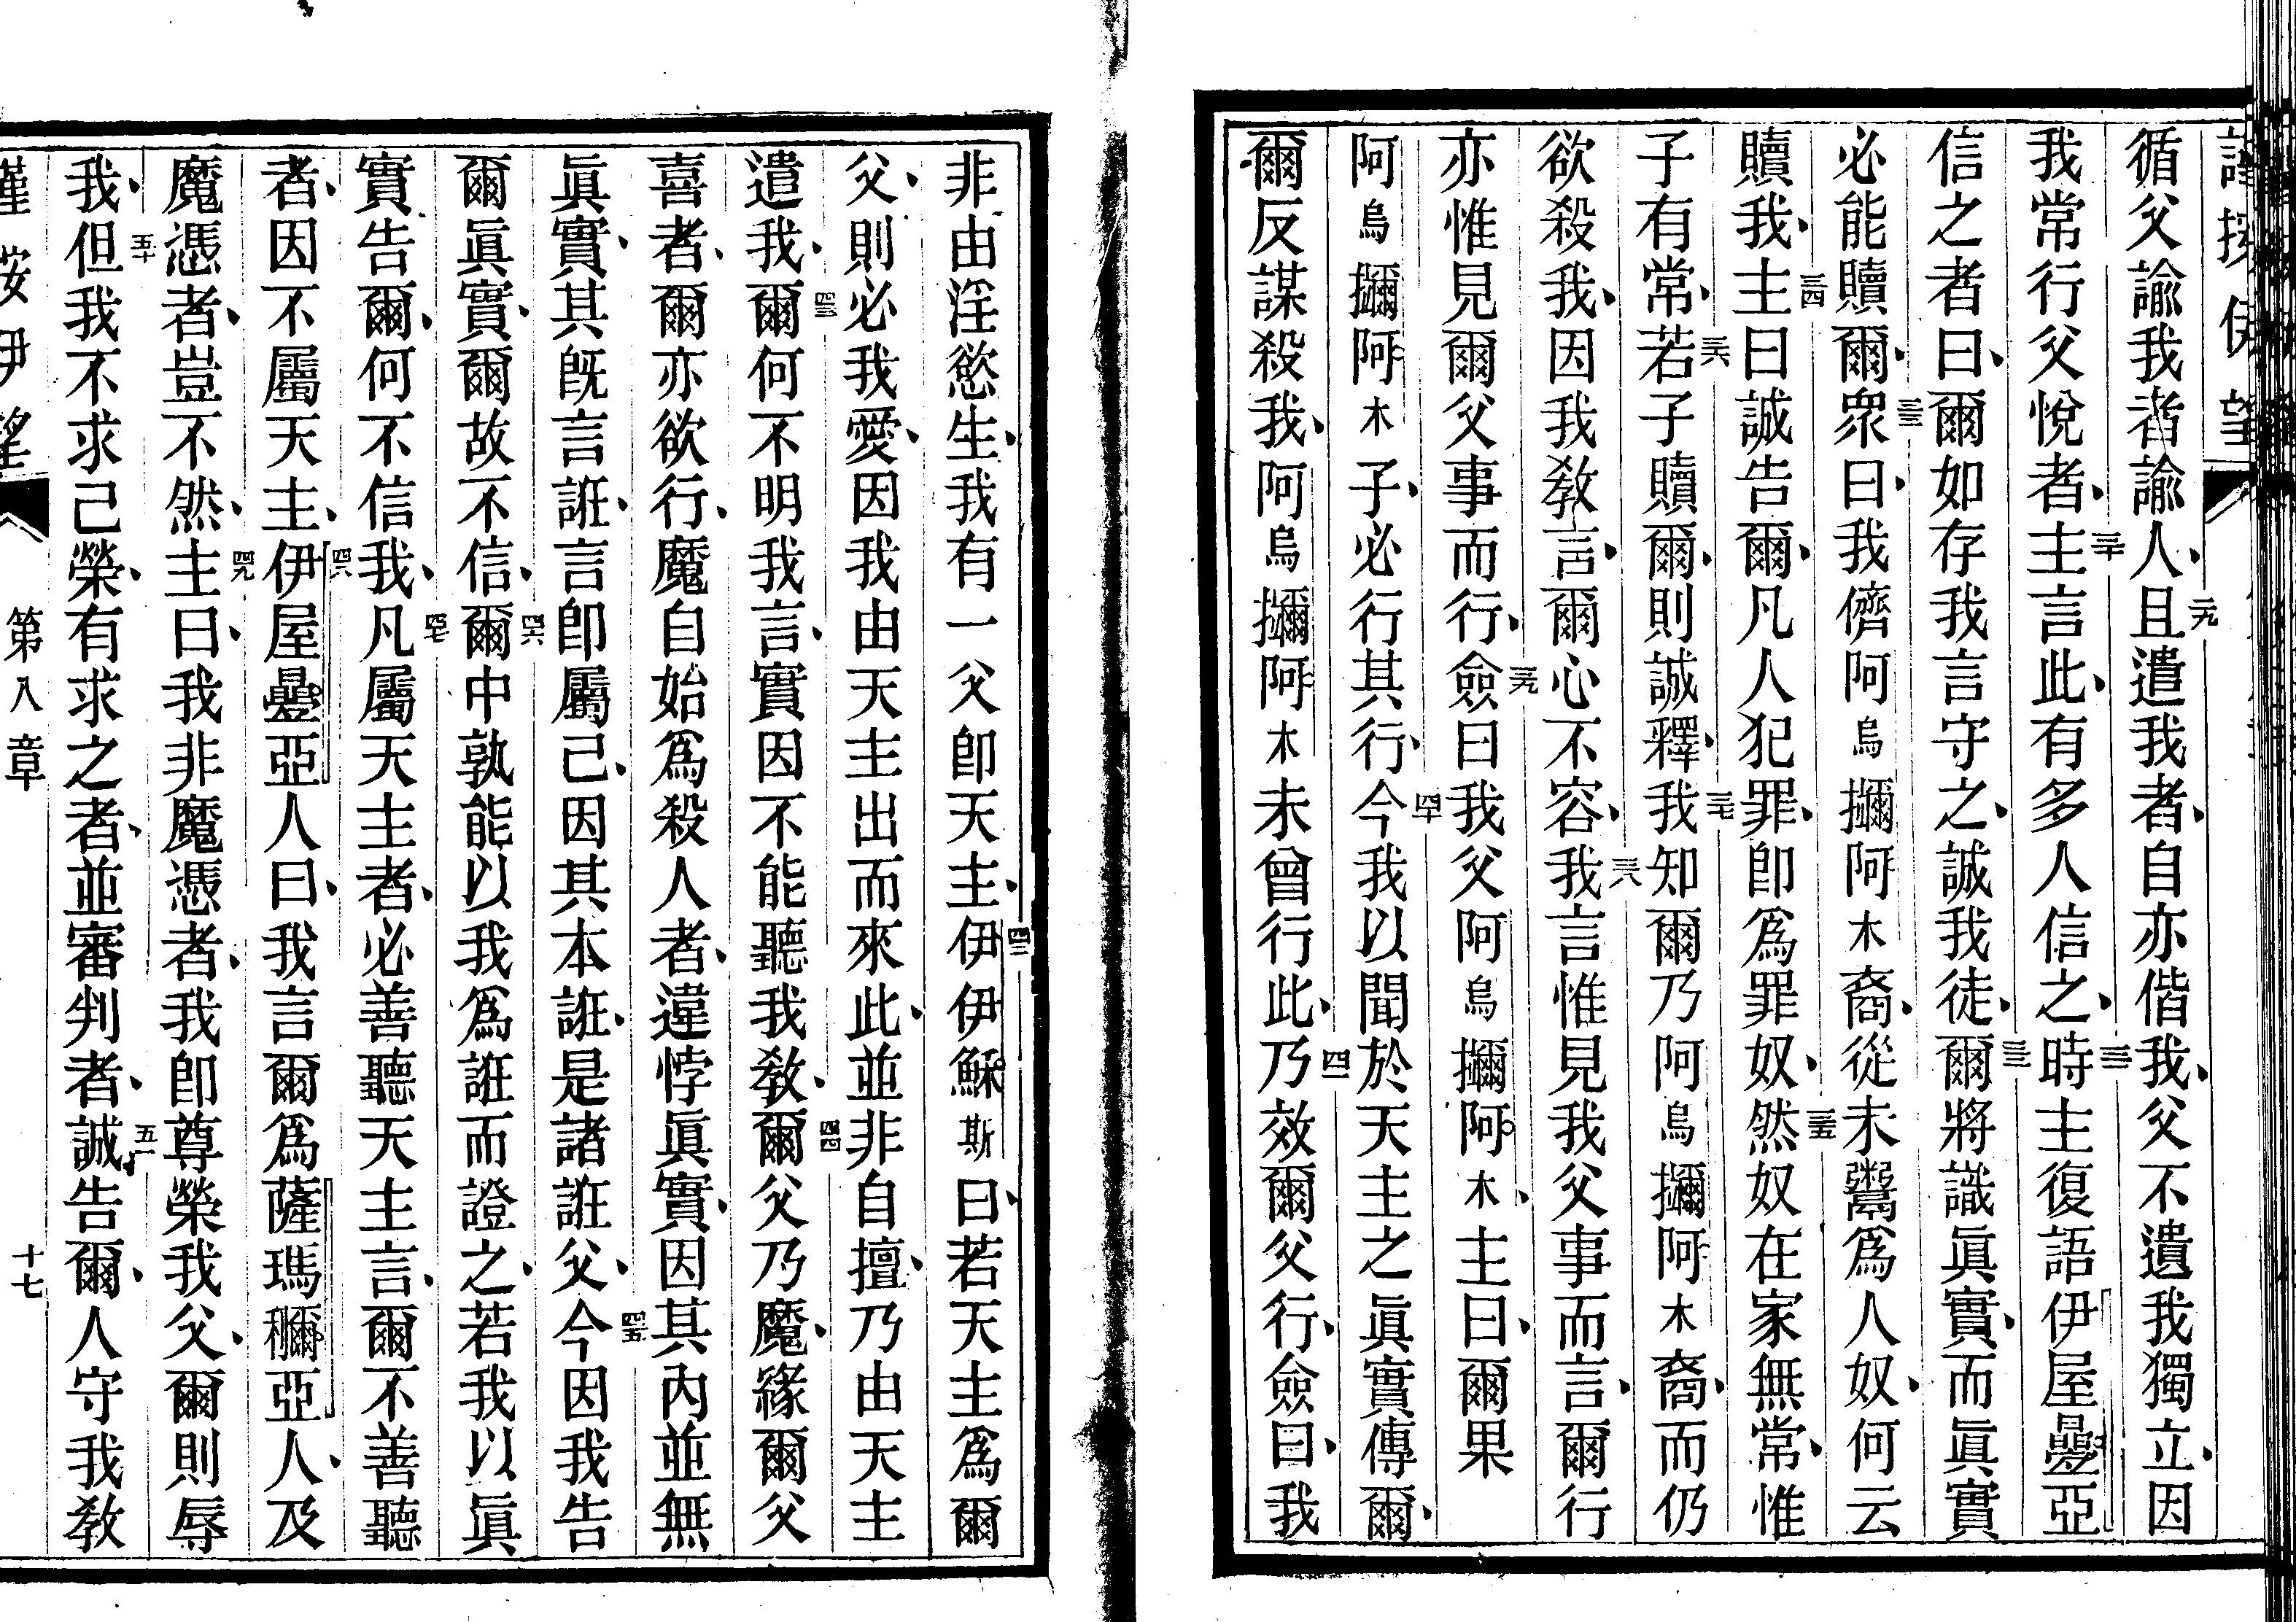 循父諭我者諭人、二九且遣我者、自亦偕我、父不遺我獨立、因
我常行父悅者、三十主言此、有多人信之、三一時主復語伊屋疊亞
信之者曰、爾如存我言守之、誠我徒、三二爾將識眞實、而眞實
必能贖爾、三三衆曰、我儕阿烏擟阿木裔、從未鬻爲人奴、何云
贖我、三四主曰誠告爾、凡人犯罪、卽爲罪奴、三五然奴在家無常、惟
子有常、三六若子贖爾、則誠釋、三七我知爾乃阿烏擟阿木裔、而仍
欲殺我、因我敎言、爾心不容、三八我言惟見我父事而言、爾行
亦惟見爾父事而行、三九僉曰我父阿烏擟阿木、主曰、爾果
阿烏擟阿木子、必行其行、四十今我以聞於天主之眞實傳爾、
爾反謀殺我、阿烏擟阿木未曾行此、四一乃效爾父行、僉曰、我
非由淫慾生、我有一父卽天主、四二伊伊穌斯曰、若天主爲爾
父、則必我愛、因我由天主出而來此、並非自擅、乃由天主
遣我、四三爾何不明我言、實因不能聽我敎、四四爾父乃魔、緣爾父
喜者、爾亦欲行、魔自始爲殺人者、違悖眞實、因其內並無
眞實、其旣言誑、言卽屬己、因其本誑、是諸誑父、四五今因我告
爾眞實、爾故不信、四六爾中孰能以我爲誑而證之、若我以眞
實告爾、何不信我、四七凡屬天主者、必善聽天主言、爾不善聽
者、因不屬天主、四八伊屋疊亞人曰、我言爾爲薩瑪穪亞人、及
魔憑者、豈不然、四九主曰、我非魔憑者、我卽尊榮我父、爾則辱
我、五十但我不求己榮、有求之者、並審判者、五一誠告爾、人守我敎
謹按伊望 第八章 十七